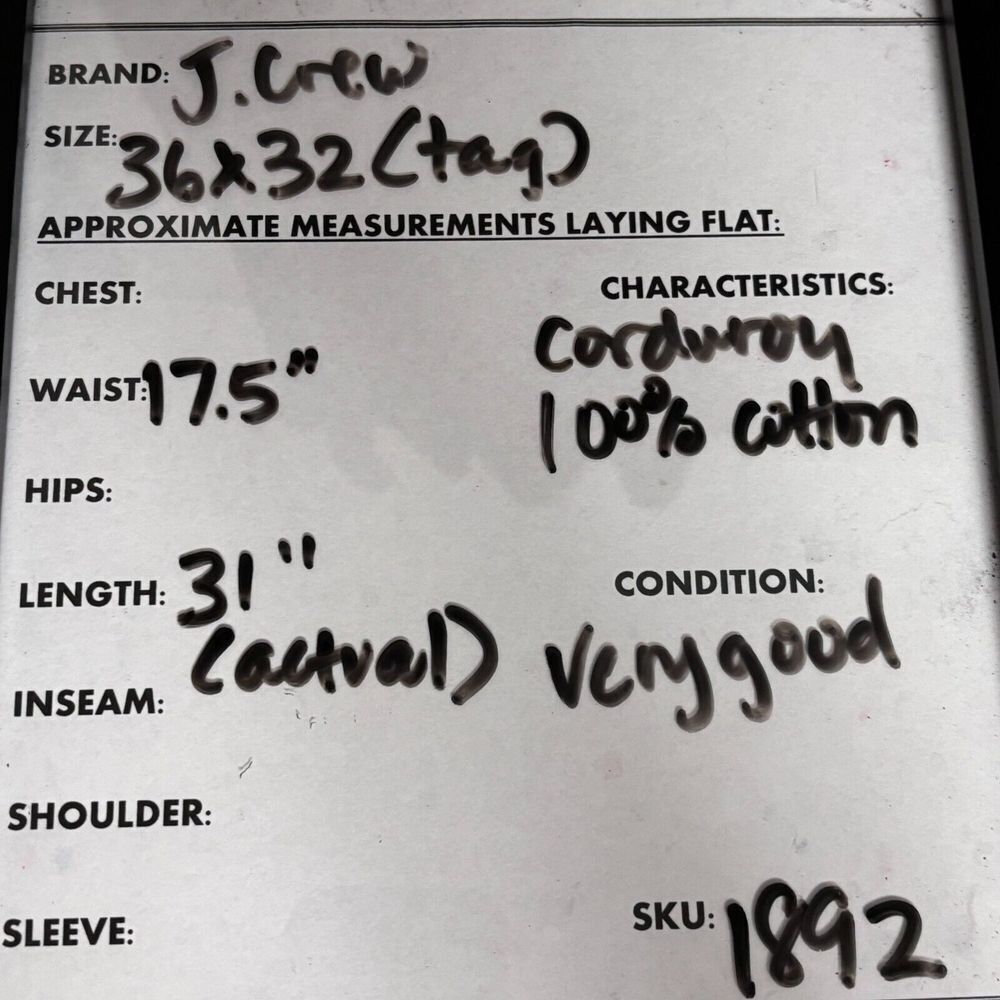 BRAND: J.Crew
SIZE: 36x32 (tag)
APPROXIMATE MEASUREMENTS LAYING FLAT:
CHEST:
CHARACTERISTICS:
Corduroy
100% cotton
WAIST: 17.5"
HIPS:
LENGTH: 31"
(actual)
CONDITION:
Very good
INSEAM:
SHOULDER:
SLEEVE:
SKU: 1892